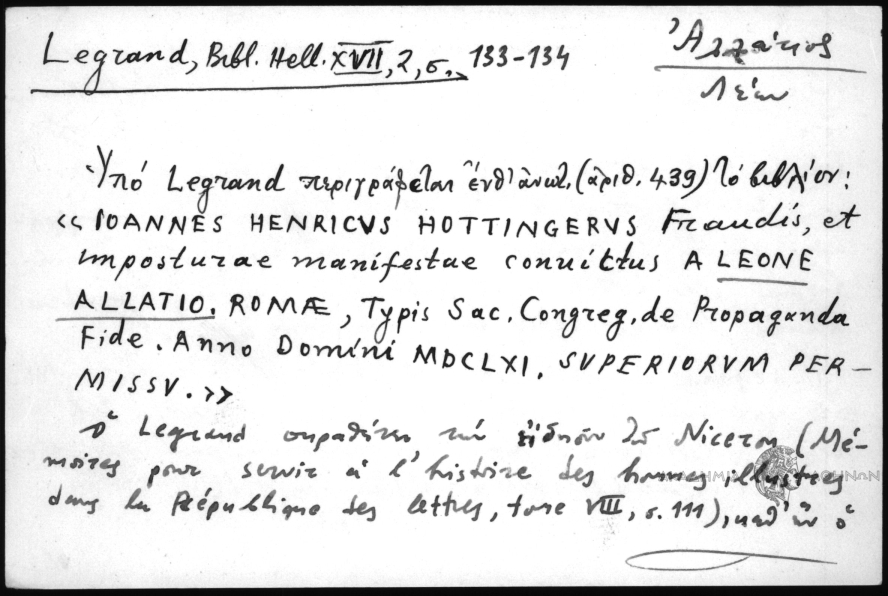 Legrand, Bibl. Hell. XVII, 2, σ. 133-134
Ἀλλάτιος
Λέων
Ὑπό Legrand περιγράφεται ἐνθ' ἀνωτ. (ἀριθ. 439) τό βιβλίον:
« IOANNES HENRICVS HOTTINGERVS Fraudis, et
imposturae manifestae convictus A LEONE
ALLATIO. ROMÆ, Typis Sac. Congreg. de Propaganda
Fide. Anno Domini MDCLXI. SVPERIORVM PER-
MISSV. »
Ὁ Legrand παραθέτει τήν εἴδησιν τοῦ Niceron (Mé-
moires pour servir à l'histoire des hommes illustres
dans la République des lettres, tome VIII, σ. 111), καθ' ἥν ὁ